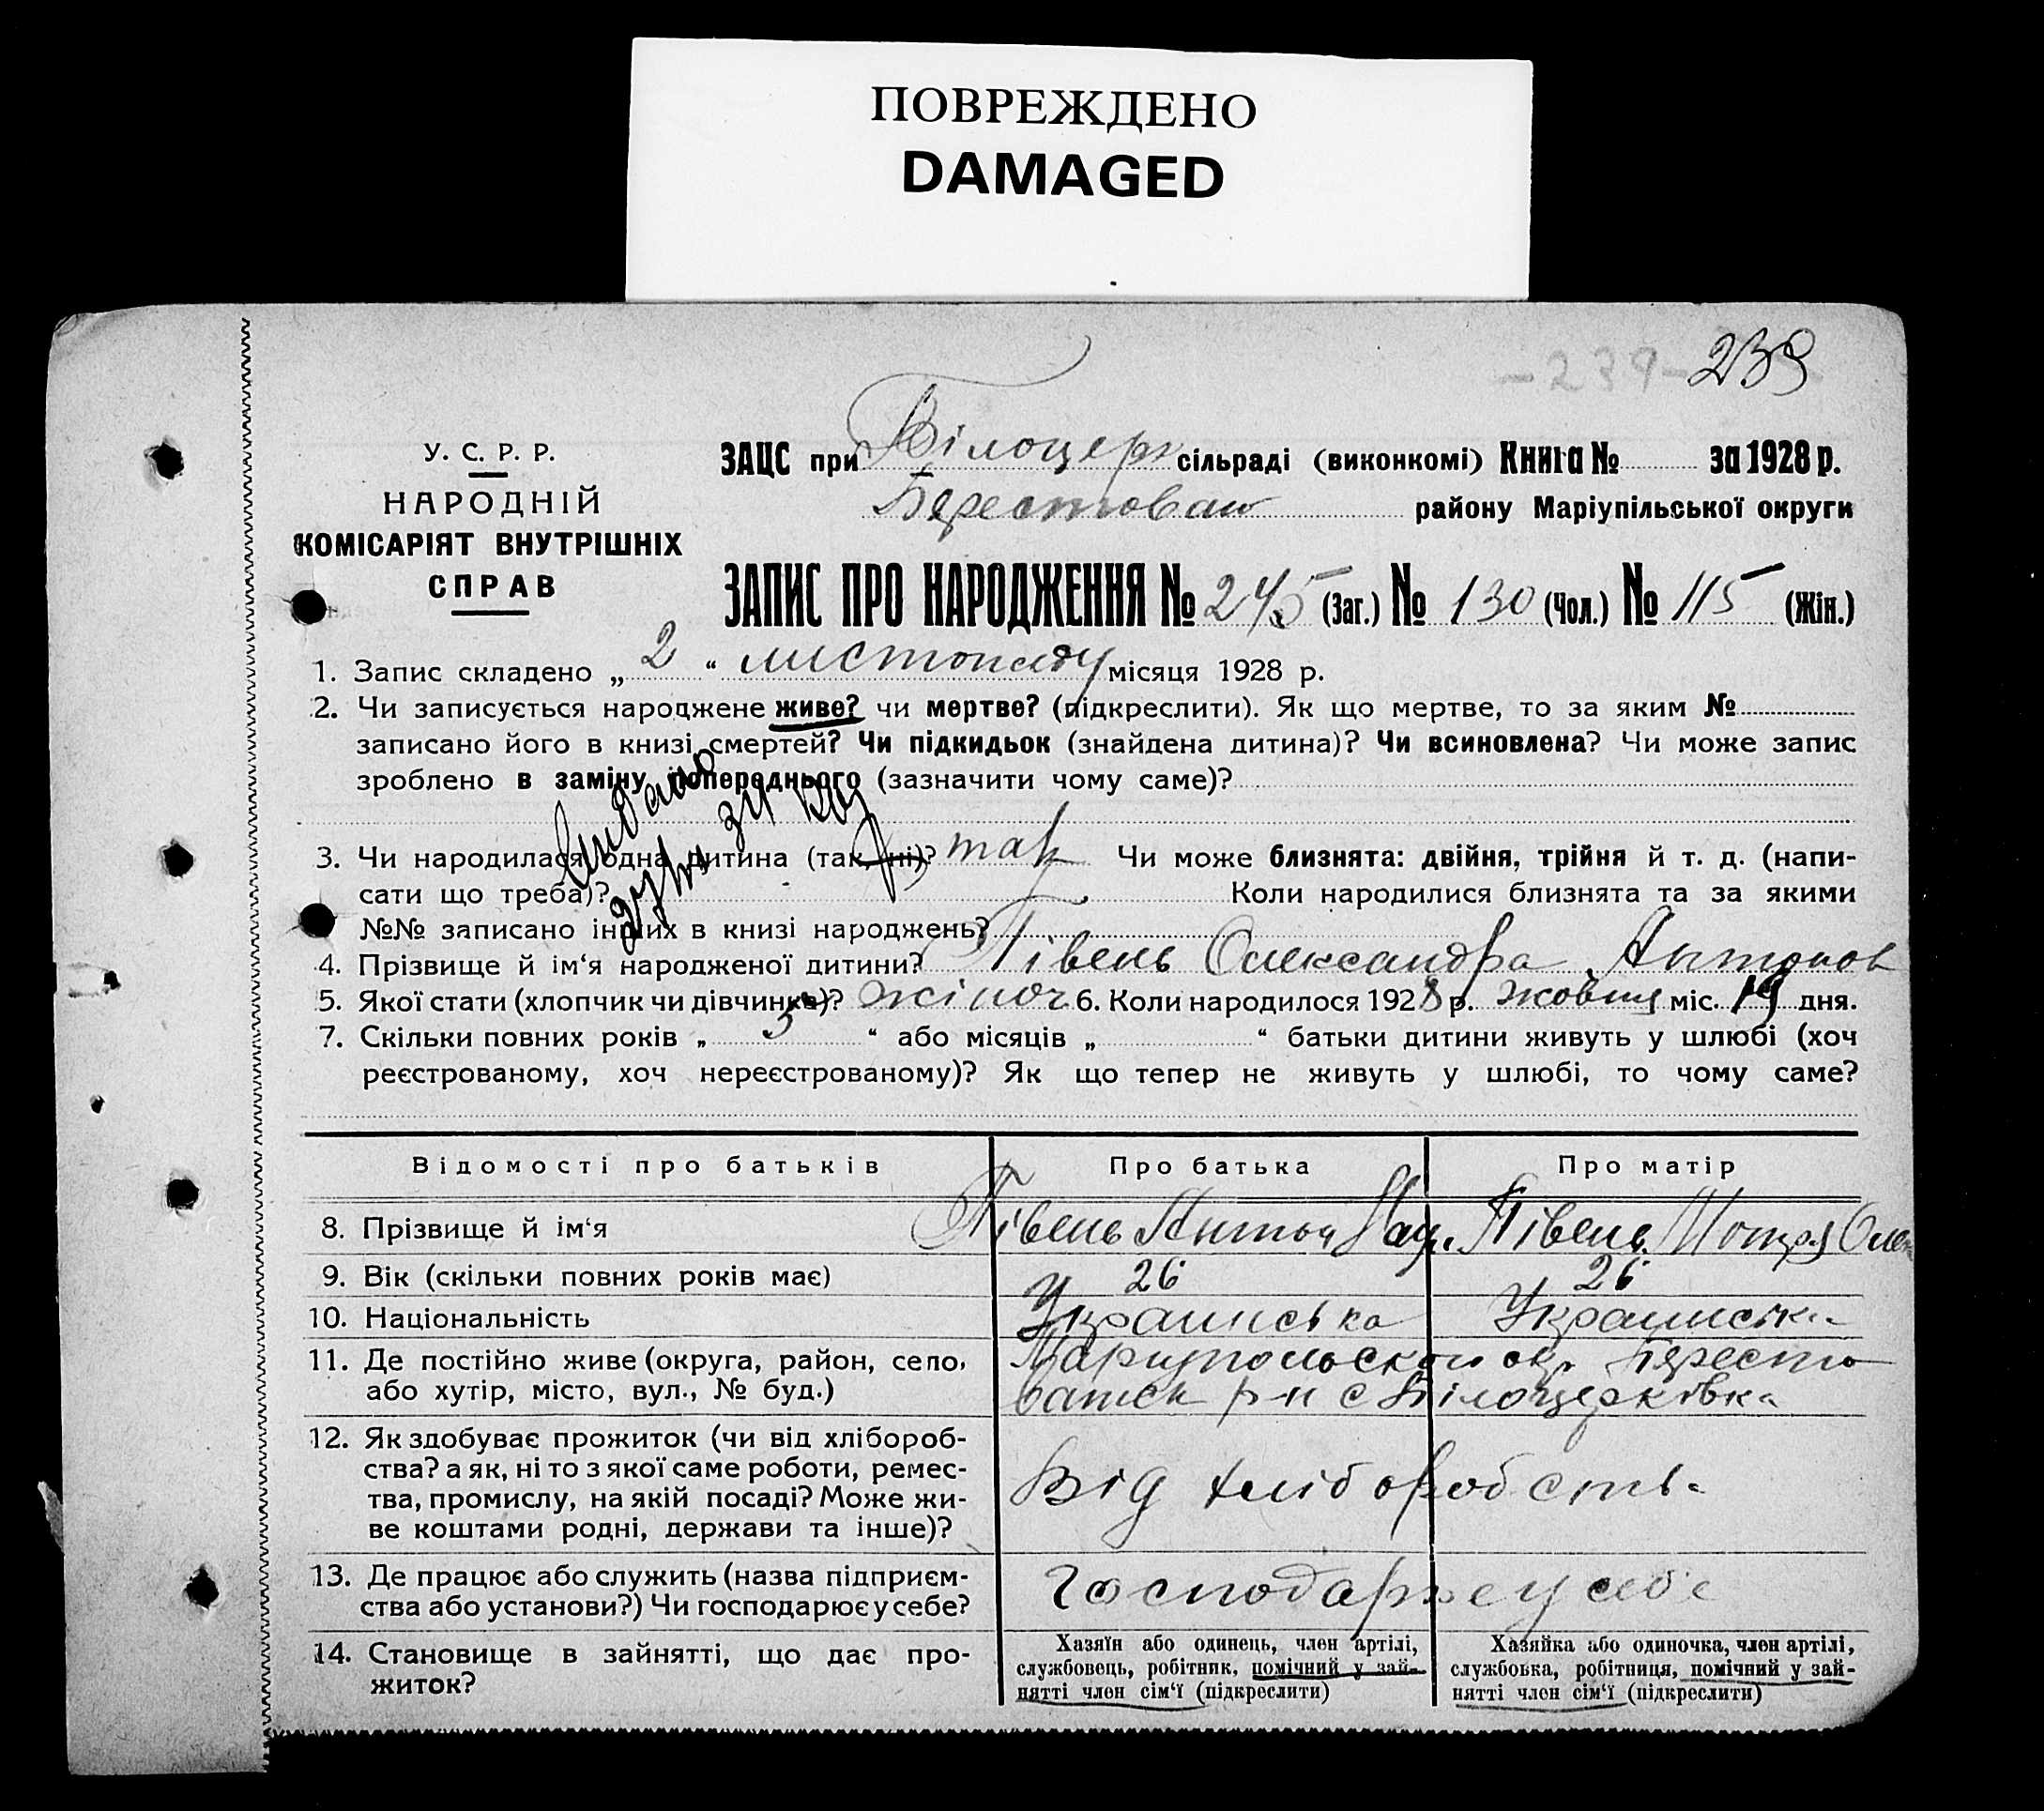 ПОВРЕЖДЕНО
DAMAGED
-239- 239
У. С. Р. Р.
НАРОДНІЙ
КОМІСАРІЯТ ВНУТРІШНІХ
СПРАВ
ЗАЦС при Білоцерк сільраді (виконкомі) Книга № за 1928 р.
Берестован району Маріупільської округи
ЗАПИС ПРО НАРОДЖЕННЯ № 245 (Заг.) № 130 (Чол.) № 115 (Жін.)
1. Запис складено „ 2 “ листопаду місяця 1928 р.
2. Чи записується народжене живе? чи мертве? (підкреслити). Як що мертве, то за яким №
записано його в книзі смертей? Чи підкидьок (знайдена дитина)? Чи всиновлена? Чи може запис
зроблено в заміну попереднього (зазначити чому саме)?
3. Чи народилася одна дитина (так, ні)? так Чи може близнята: двійня, трійня й т. д. (напи-
сати що треба)? Коли народилися близнята та за якими
№№ записано інших в книзі народжень?
4. Прізвище й ім‘я народженої дитини? Півень Олександра Антонов
5. Якої стати (хлопчик чи дівчинка)? жіноч 6. Коли народилося 1928 р. жовтня міс. 19 дня.
7. Скільки повних років „ 5 “ або місяців „ “ батьки дитини живуть у шлюбі (хоч
реєстрованому, хоч нереєстрованому)? Як що тепер не живуть у шлюбі, то чому саме?
Відомості про батьків Про батька Про матір
8. Прізвище й ім‘я Півень Антон Півень Мотря Олек
9. Вік (скільки повних років має) 26 26
10. Національність Украинська Украинська
11. Де постійно живе (округа, район, село, Мариупольской окр. Бересто
або хутір, місто, вул., № буд.) ванск р-н с Білоцерківка
12. Як здобуває прожиток (чи від хлібороб-
ства? а як, ні то з якої саме роботи, ремес-
тва, промислу, на якій посаді? Може жи-
ве коштами родні, держави та інше)?
Від хліборобства
13. Де працює або служить (назва підприєм-
ства або установи?) Чи господарює у себе?
Господарює у себе
14. Становище в зайнятті, що дає про-
житок?
Хазяїн або одинець, член артілі,
службовець, робітник, помічний у зай-
нятті член сім‘ї (підкреслити)
Хазяйка або одиночка, член артілі,
службовка, робітниця, помічний у зай-
нятті член сім‘ї (підкреслити)